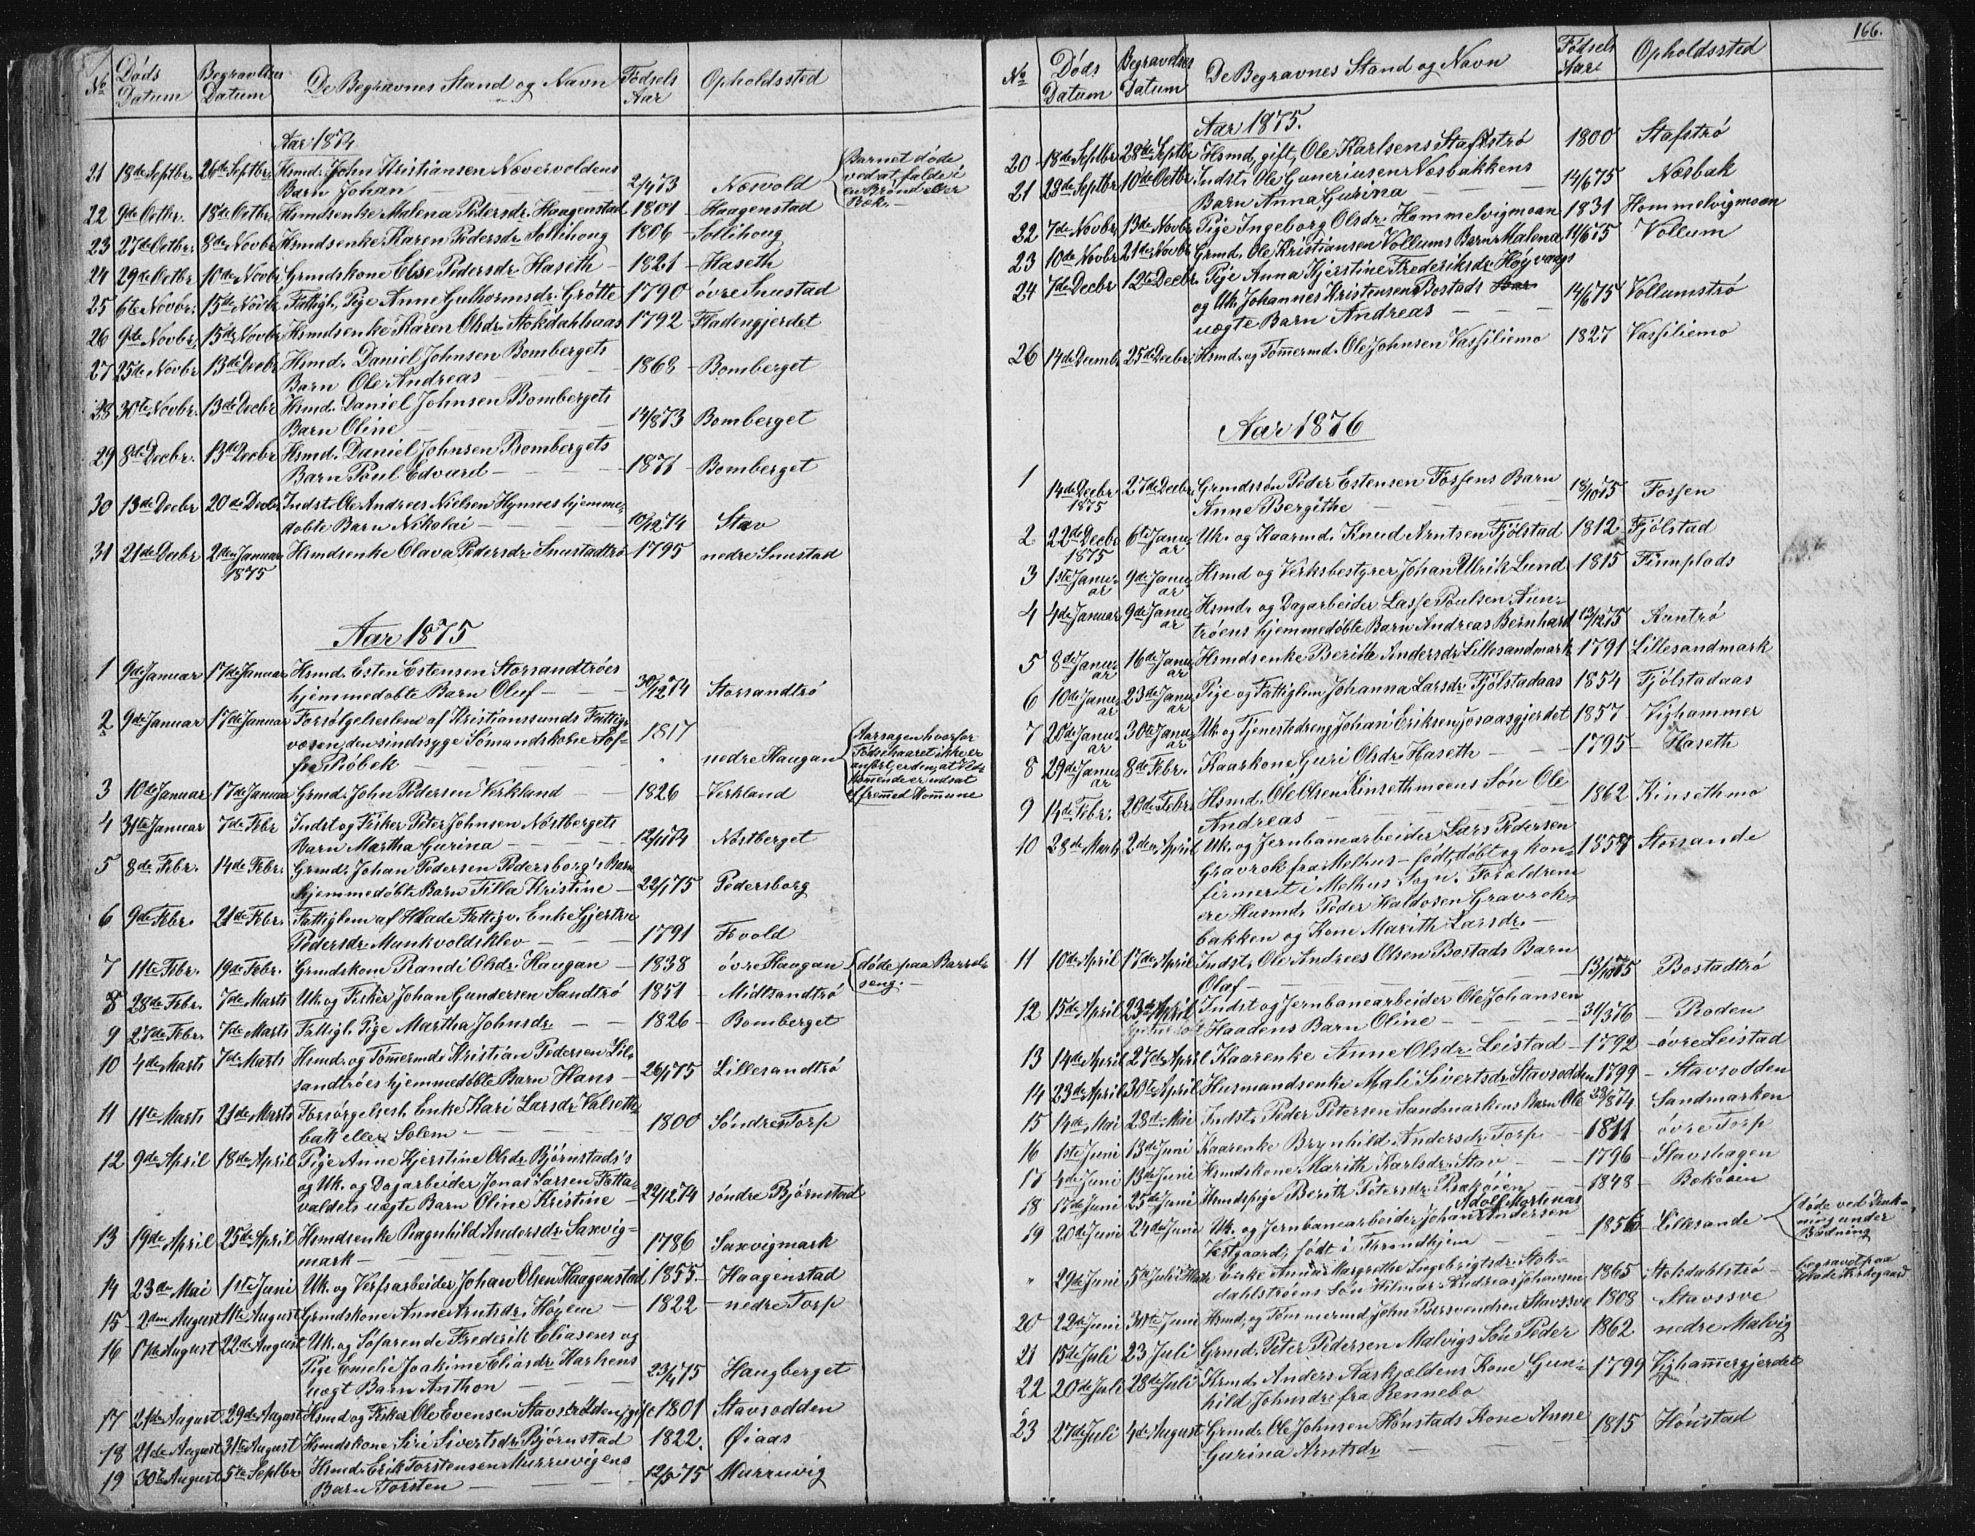 166.
No Døds Datum Begravelses Datum De Begravnes Stand og Navn Fødsels Aar Opholdssted
Aar 1874
21 18de Septbr. 26de Septbr. Hsmd. John Kristiansen Nævervoldens
Barn Johan — 2/4 73 Nævold
(Barnet døde
ved at falde i
en Brønd eller
Bæk.—
22 9de Octbr. 18de Octbr. Hsmdsenke Malena Pedersdr. Haagenstad 1801 Haagenstad
23 27de Octbr. 8de Novbr. Hsmdsenke Karen Pedersdr. Sollihoug 1806 Sollihoug
24 29de Octbr. 10de Novbr. Grmdskone Else Pedersdr. Haseth 1821 Haseth
25 6te Novbr. 15de Novbr. Fattigl. Pige Anne Guthormsdr. Grøtte 1790 øvre Snustad
26 9de Novbr. 15de Novbr. Hsmdsenke Karen Olsdr. Stokdahlsaas 1792 Fladengjerdet
27 25de Novbr. 13de Decbr. Hsmd. Daniel Johnsen Bombergets
Barn Ole Andreas — 1868 Bomberget
28 30te Novbr. 13de Decbr. Hsmd. Daniel Johnsen Bombergets
Barn Oline — 14/8 73 Bomberget
29 8de Decbr. 13de Decbr. Hsmd. Daniel Johnsen Bombergets
Barn Poul Edvard — 1871 Bomberget
30 13de Decbr. 20de Decbr. Indst. Ole Andreas Nielsen Hynnes hjemme-
døbte Barn Nikolai — 10/12 74 Stav
31 21de Decbr. 2den Januar 1875 Hsmdsenke Olava Pedersdr. Snustadtrø 1795 nedre Snustad
Aar 1875
1 9de Januar 17de Januar Hsmd. Esten Estensen Storsandtrøes
hjemmedøbte Barn Oluf — 30/12 74 Storsandtrø
2 9de Januar 17de Januar Forsørgelseslem af Kristianssunds Fattig-
væsen, den sindssyge Sømandskone Sof-
fe Piøbek — 1817 nedre Haugan
(Aarsagen hvorfor
Fødselsaaret ikke er
anført er den, at
er udsat
af fremmed Kommune
3 10de Januar 17de Januar Grmd. John Pedersen Verkland — 1826 Verkland
4 31te Januar 7de Febr. Indst. og Fisker Peter Johnsen Nøstbergets
Barn Martha Gurina — 12/11 74 Nøstberget
5 8de Febr. 14de Febr. Grmd. Johan Pedersen Pedersborg's Barn
hjemmedøbte Barn Tilla Kristine — 22/1 75 Pedersborg
6 9de Febr. 21de Febr. Fattiglem af Hlade Fattigv. Enke Gjertru
Pedersdr. Munkvoldsklev — 1791 Fvold
7 11te Febr. 19de Febr. Grmdskone Randi Olsdr. Haugan — 1838 øvre Haugan
(døde paa Barsel-
seng.—
8 28de Febr. 7de Marts Uk. og Fisker Johan Gundersen Sandtrø 1851 Midtsandtrø
9 27de Febr. 7de Marts Fattigl. Pige Martha Johnsdr. — 1826 Bomberget
10 4de Marts 7de Marts Hsmd. og Tømermd. Kristian Pedersen Lil-
sandtrøes hjemmedøbte Barn Hans — 26/1 75 Lillesandtrø
11 11te Marts 21de Marts Forsørgelsesl. Enke Kari Larsdr. Valseth-
bak eller Solem — 1800 Søndre Torp
12 9de April 18de April Pige Anne Kjerstine Olsdr. Bjørnstad's
og Uk. og Dagarbeider Jonas Larsen Fatta-
valdets uægte Barn Oline Kristine — 22/12 74 søndre Bjørnstad
13 19de April 25de April Hsmdsenke Ragnhild Andersdr. Saxvig-
mark — 1786 Saxvigmark
14 23de Mai 1ste Juni Uk. og Verfsarbeider Johan Olsen Haagenstad 1855 Haagenstad
15 2den August 11te August Grmdskone Anne Arntsdr. Høyem — 1822 nedre Torp
16 17de August 22de August Uk. og Søfarende Frederik Eliasens og
Pige Emelie Joakime Eliasdr. Karhens
uægt Barn Anthon — 23/4 75 Haugberget
17 21de August 29de August Hsmd. og Fisker Ole Evensen Stavsodden, gift 1801 Stavsodden
18 21de August 31te August Hsmdskone Siri Sivertsdr. Bjørnstad 1822. Øiaas
19 30te August 5te Septbr. Hsmd. Erik Torstensen Murruvigens
Barn Torsten — 12/2 75 Murruvig
No Døds Datum Begravelses Datum De Begravnes Stand og Navn Fødsels Aar Opholdssted
Aar 1875.
20 18de Septbr. 28de Septbr. Hsmd., gift, Ole Karlsens Stafstrø 1800 Stafstrø
21 28de Septbr. 10de Octbr. Indst. Ole Guneriusen Næsbakkens
Barn Anna Gurina 14/6 75 Næsbak
22 7de Novbr. 13de Novbr. Pige Ingeborg Olsdr. Hommelvigmoan 1831 Hommelvigmoan
23 10de Novbr. 21de Novbr. Grmd. Ole Kristiansen Vollums Barn Malena 11/6 75 Vollum
24 7de Decbr. 12te Decbr. Pige Anna Kjerstine Frederiksdr. Høyvags
og Uk. Johannes Kristensen Bostads
uægte Barn Andreas — 14/6 75 Vollumstrø
26 14de Decmb. 25de Decbr. Hsmd. og Tømmermd. Ole Johnsen Vassiliemo 1827 Vassiliemo
Aar 1876
1 14de Decbr. 1875 27de Decbr. Grmdssøn Peder Estensen Fossens Barn
Anne Bergithe — 18/10 75 Fossen
2 22de Decbr. 1875 6te Januar Uk. og Kaarmd. Knud Arntsen Fjølstad 1812 Fjølstad
3 1ste Januar 9de Januar Hsmd og Verksbestyrer Johan Ulrik Lund 1815 Finnplads
4 4de Januar 9de Januar Hsmd. og Dagarbeider Lasse Poulsen Aun-
trøens hjemmedøbte Barn Andreas Bernhard 13/12 75 Auntrø
5 8de Januar 16de Januar Hsmdsenke Berithe Andersdr. Lillesandmark 1791 Lillesandmark
6 10de Januar 23de Januar Pige og Fattiglem Johanna Larsdr. Fjølstadaas 1854 Fjølstadaas
7 20de Januar 30te Januar Uk. og Tjenestedreng Johan Eriksen Josaasgjerdet 1857 Vighammer
8 29de Januar 8de Febr. Kaarkone Guri Olsdr. Haseth — 1795 Haseth
9 14de Febr. 20de Febr. Hsmd. Ole Olsen Kinsethmoens Søn Ole
Andreas — 1862 Kinsethmo
10 28de Marts 2den April Uk. og Jernbanearbeider Lars Pedersen
Gravrok fra Melhus — født, døbt og kon-
firmeret i Melhus Sogn. Forældrene
ere Husmd. Peder Haldosen Gravrok-
bakken og Kone Marith Larsdr. — 1857 Storsande
11 10de April 17de April Indst. Ole Andreas Olsen Bostads Barn
Olaf — 13/10 75 Bostadtrø
12 15de April 23de April Indst. og Jernbanearbeider Ole Johansen
Haadens Barn Oline — 31/3 76 Roden
13 14de April 27de April Kaarenke Anne Olsdr. Leistad — 1792 øvre Leistad
14 23de April 30te April Husmandsenke Mali Sivertsdr. Stavsodden 1799 Stavsodden
15 14de Mai 28de Mai Indst. Peder Petersen Sandmarkens Barn Ole 23/8 74 Sandmarken
16 1ste Juni 13de Juni Kaarenke Brynhild Andersdr. Torp — 1811 øvre Torp
17 4de Juni 13de Juni Hsmdskone Marith Karlsdr. Stav — 1796 Stavshagen
18 17de Juni 25de Juni Hsmdspige Berith Petersdr. Bakøien — 1848 Bekøien
19 20de Juni 24de Juni Uk. og Jernbanearbeider Johan Adolf Mortenas Andersen
Vestgaard, født i Throndhjem — 1856 Lillesande
(døde ved Druk-
ning under
Badning
" 29de Juni 5te Juli Hlade Enke Anna Margrethe Ingebrigtsdr. Stok-
dahlstrøens Søn Hilmar Andreas Johansen 1865 Stokdahlstrø
begravet paa
Hlade Kirkegaard
20 22de Juni 30te Juni Hsmd. og Tømmermd. John Bersvendsen Stavssve 1808 Stavssve
21 15de Juli 23 Juli Grmd. Peter Pedersen Malvigs Søn Peder 1862 nedre Malvig
22 20de Juli 28de Juli Hsmd. Anders Aaskjældens Kone Gun-
hild Johnsdr. fra Rennebo 1799 Vighammergjerdet
23 27de Juli 4de August Grmd. Ole Johnsen Hønstads Kone Anne
Gurina Arntsdr. — 1815 Hønstad